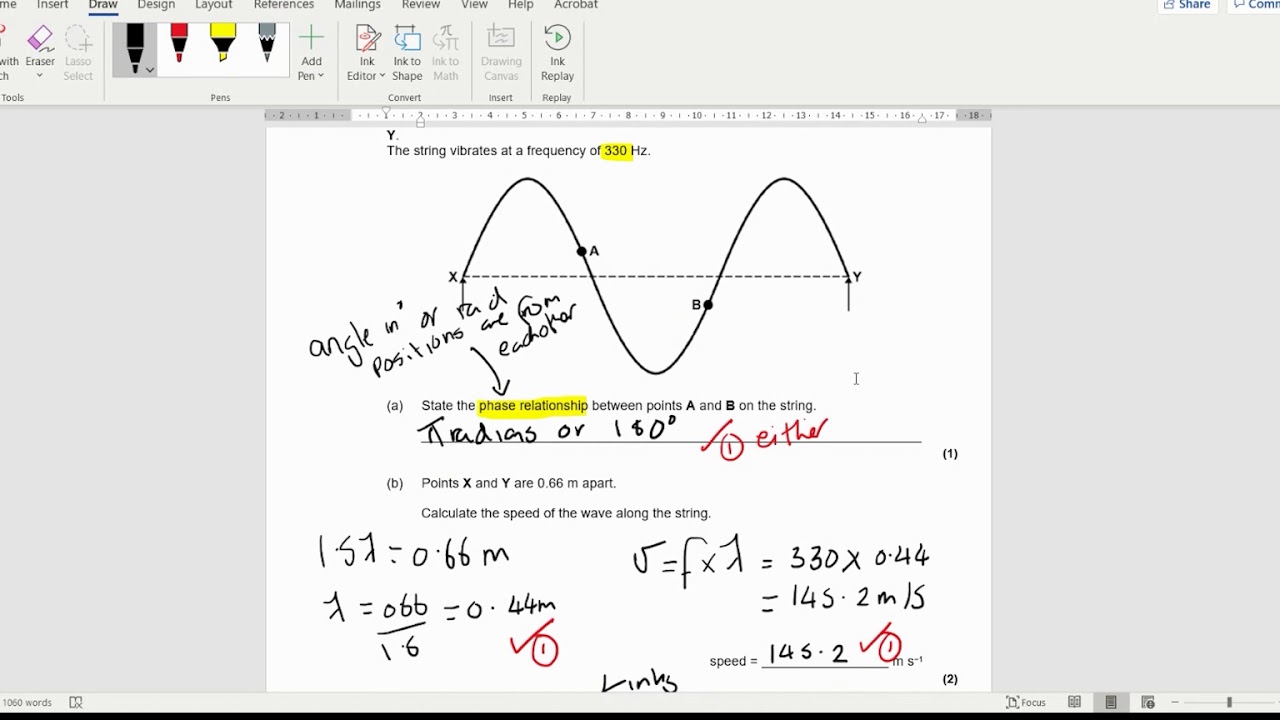 me Insert Draw Design Layout References Mailings Review View Help Acrobat Share Comm
with ch Eraser Lasso Select Add Pen Ink Editor Ink to Shape Ink to Math Drawing Canvas Ink Replay
Tools Pens Convert Insert Replay
2 1 1 2 3 4 5 6 7 8 9 10 11 12 13 14 15 16 17 18
Y.
The string vibrates at a frequency of 330 Hz.
A
X Y
B
angle in ° or rad
positions are from
eachother
(a) State the phase relationship between points A and B on the string.
π radians or 180° ✓① either
(1)
(b) Points X and Y are 0.66 m apart.
Calculate the speed of the wave along the string.
1.5λ = 0.66 m
λ = 066/1.5 = 0.44m
✓①
v = f x λ = 330 x 0.44
= 145.2 m/s
speed = 145.2 ✓① m s⁻¹
(2)
Links
1060 words Focus